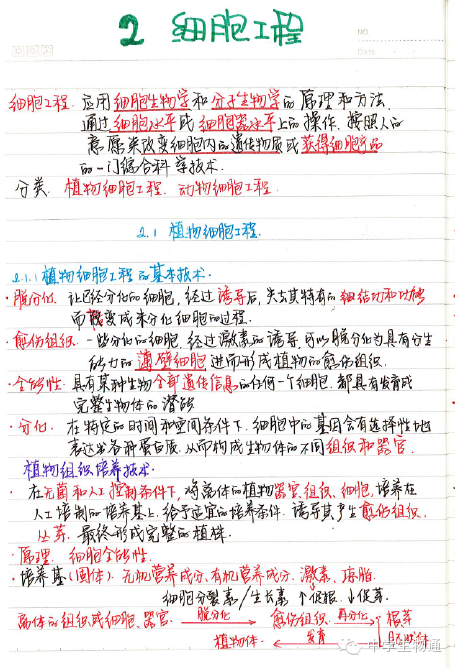 2 细胞工程
NO.
Date
细胞工程: 应用细胞生物学和分子生物学的原理和方法、
通过细胞水平或细胞器水平上的操作、按照人的
意愿来改变细胞内的遗传物质或获得细胞产品
的一门综合科学技术.
分类: 植物细胞工程、动物细胞工程.
2.1 植物细胞工程.
2.1.1 植物细胞工程的基本技术.
·脱分化: 让已经分化的细胞, 经过诱导后, 失去其特有的结构和功能
而转变成未分化细胞的过程.
·愈伤组织: 一些分化的细胞, 经过激素的诱导, 可以脱分化为具有分生
能力的薄壁细胞 进而形成植物的愈伤组织.
·全能性: 具有某种生物全部遗传信息的任何一个细胞、都具有发育成
完整生物体的潜能
·分化: 在特定的时间和空间条件下、细胞中的基因会有选择性地
表达出各种蛋白质、从而构成生物体的不同组织和器官.
植物组织培养技术.
·在无菌和人工控制条件下, 将离体的植物器官、组织、细胞, 培养在
人工培制的培养基上、给予适宜的培养条件、诱导其产生愈伤组织、
丛芽、最终形成完整的植株.
·原理: 细胞全能性.
·培养基(固体): 无机营养成分、有机营养成分、激素、琼脂.
细胞分裂素/生长素 ↑促根 ↓促芽.
离体的组织或细胞、器官 脱分化 愈伤组织 再分化 根芽
植物体 发育 胚状体
中学生物通